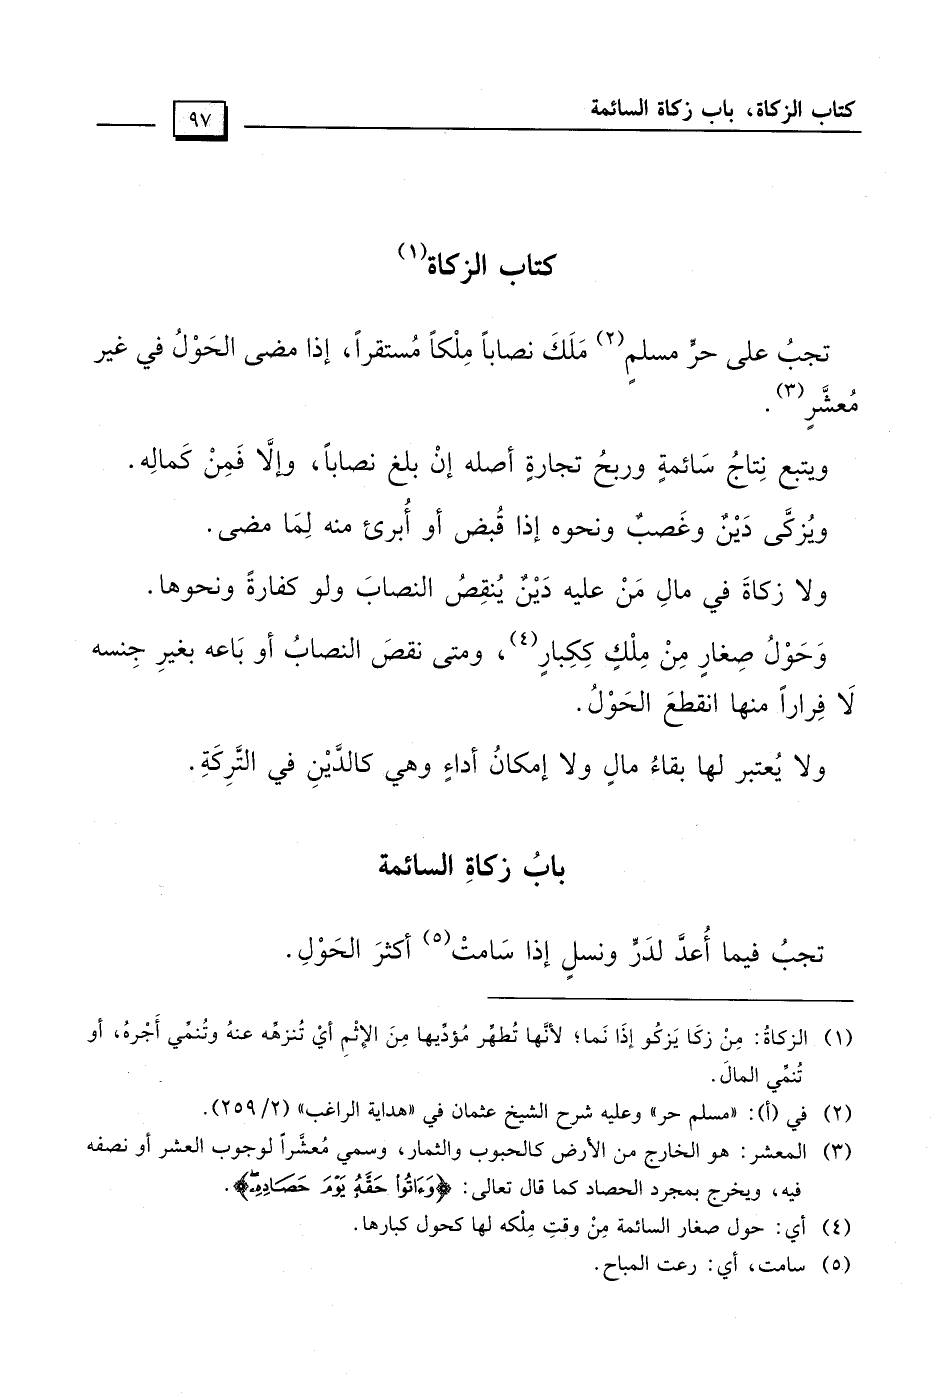 كتاب الزكاة، باب زكاة السائمة
٩٧
كتاب الزكاة(١)
تجبُ على حرٍّ مسلمٍ(٢) مَلَكَ نصاباً مِلْكاً مُستقراً، إذا مضى الحَوْلُ في غير
مُعشَّرٍ(٣).
ويتبع نِتاجُ سَائمةٍ وربحُ تجارةٍ أصله إنْ بلغ نصاباً، وإلَّا فَمِنْ كَمالِه.
ويُزكَّى دَيْنٌ وغَصبٌ ونحوه إذا قُبض أو أُبرئ منه لِمَا مضى.
ولا زكاةَ في مالِ مَنْ عليه دَيْنٌ يُنقِصُ النصابَ ولو كفارةً ونحوها.
وَحَوْلُ صِغارٍ مِنْ مِلْكٍ كَكِبارٍ(٤)، ومتى نقصَ النصابُ أو بَاعه بغيرِ جِنسه
لَا فِراراً منها انقطعَ الحَوْلُ.
ولا يُعتبر لها بقاءُ مالٍ ولا إمكانُ أداءٍ وهي كالدَّيْنِ في التَّرِكَةِ.
بابُ زكاةِ السائمة
تجبُ فيما أُعدَّ لدَرٍّ ونسلٍ إذا سَامتْ(٥) أكثرَ الحَوْلِ.
(١) الزكاةُ: مِنْ زكَا يَزكُو إذَا نَما؛ لأنَّها تُطهِّر مُؤدِّيها مِنَ الإثْمِ أيْ تُنزهِّه عنهُ وتُنمِّي أَجْرهُ، أو
تُنمِّي المالَ.
(٢) في (أ): «مسلم حر» وعليه شرح الشيخ عثمان في «هداية الراغب» (٢/ ٢٥٩).
(٣) المعشر: هو الخارج من الأرض كالحبوب والثمار، وسمي مُعشَّراً لوجوب العشر أو نصفه
فيه، ويخرج بمجرد الحصاد كما قال تعالى: ﴿وَءَاتُوا۟ حَقَّهُۥ يَوْمَ حَصَادِهِۦ﴾.
(٤) أي: حول صغار السائمة مِنْ وقتِ مِلْكه لها كحول كبارها.
(٥) سامت، أي: رعت المباح.